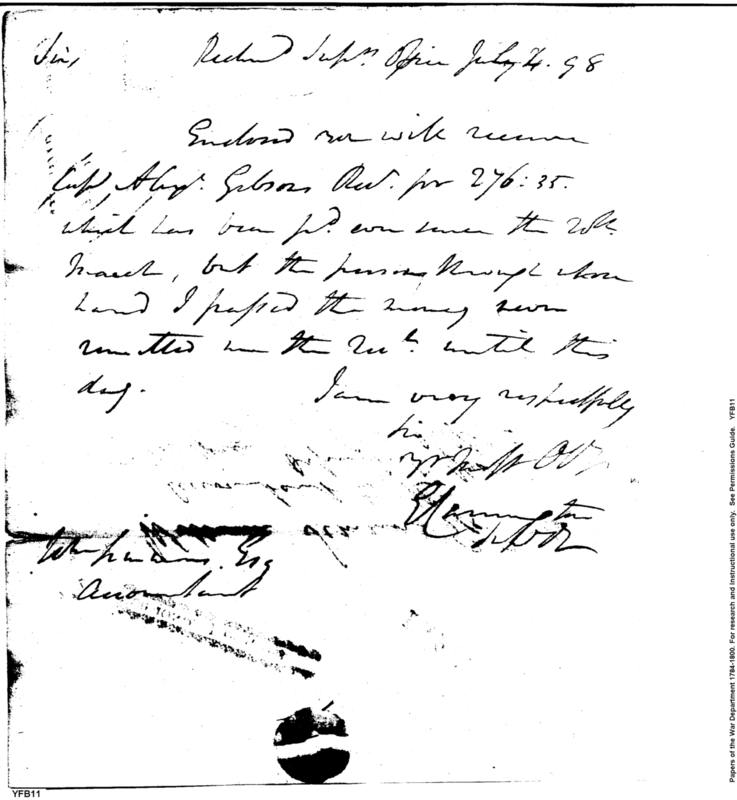 Sir, Richmd Supts Office July 4. 98
Enclosed you will receive
Capt Alexr. Gibsons Rect. for 276:35.
which has been pd ever since the 20th
March, but the person, through whose
hand I passed the money never
remitted me the recet. until this
day. I am very respectfully
Sir
yr most Ob
E Carrington
Wm Simmons. Esq
Accountant
Papers of the War Department 1784-1800. For research and Instructional use only. See Permissions Guide. YFB11
YFB11